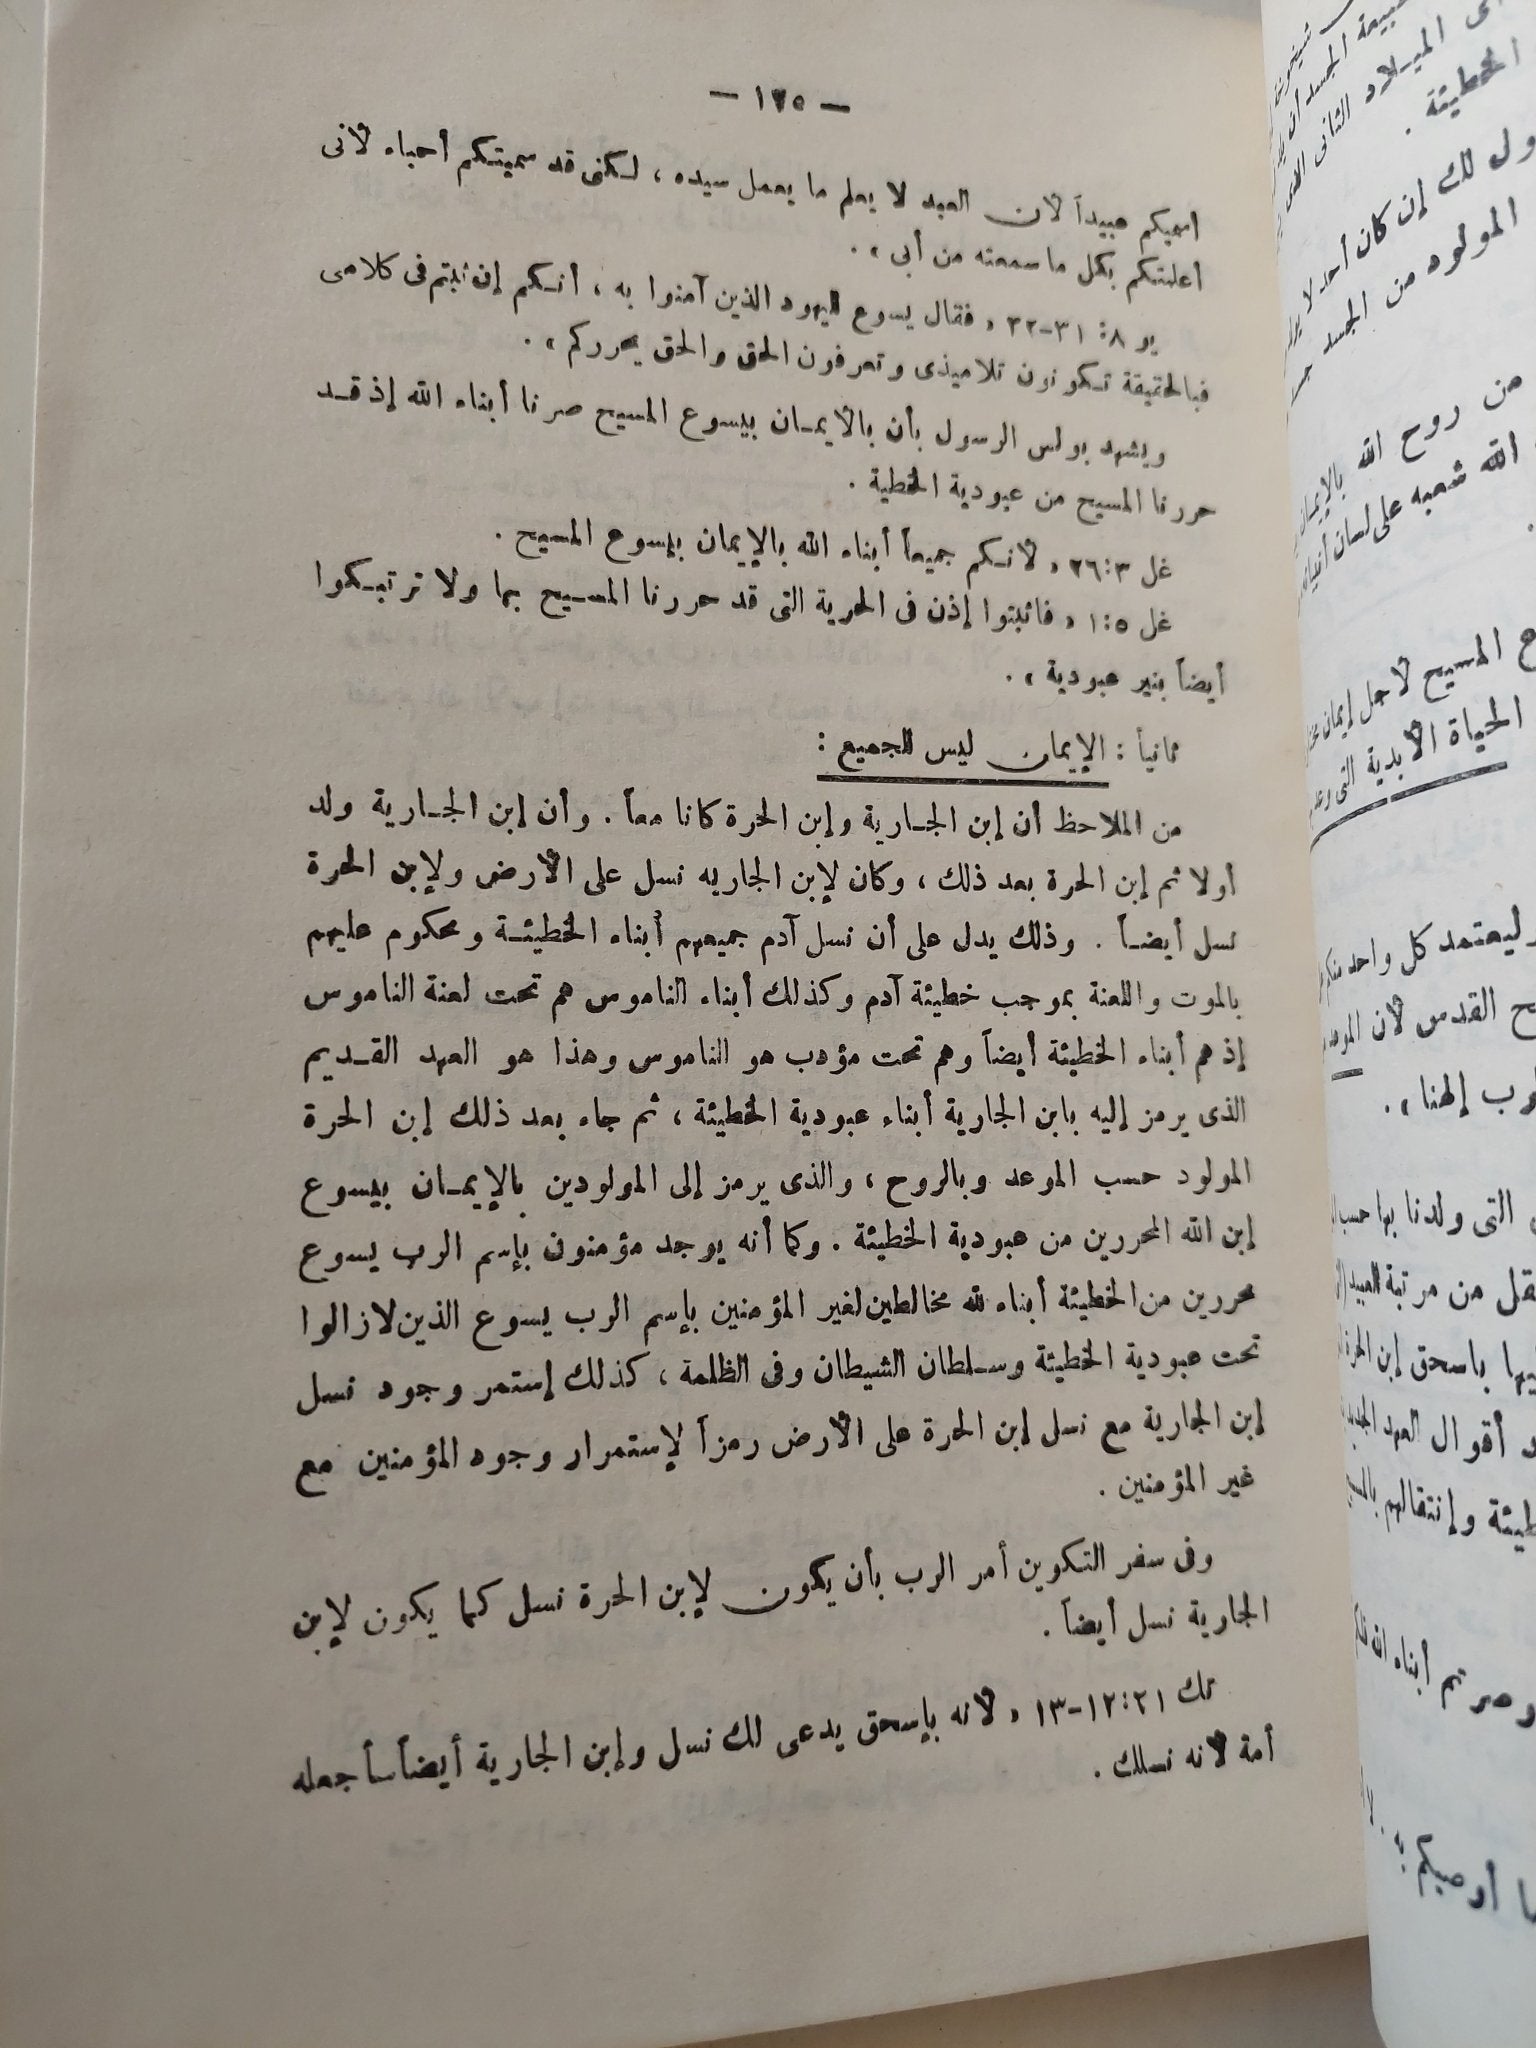 — ١٢٥ —
أسميكم عبيداً لأن العبد لا يعلم ما يعمل سيده ، لكنى قد سميتكم أحباء لأنى
أعلمتكم بكل ما سمعته من أبى » .
يو ٨: ٣١-٣٢ « فقال يسوع لليهود الذين آمنوا به ، أنكم إن ثبتم فى كلامى
فبالحقيقة تكونون تلاميذى وتعرفون الحق والحق يحرركم » .
ويشهد بولس الرسول بأن بالايمان بيسوع المسيح صرنا أبناء الله إذ قد
حررنا المسيح من عبودية الخطية .
غل ٢٦:٣ « لانكم جميعاً أبناء الله بالإيمان بيسوع المسيح .
غل ١:٥ « فاثبتوا إذن فى الحرية التى قد حررنا المسيح بها ولا ترتبكوا
أيضاً بنير عبودية » .
ثانياً : الإيمان ليس للجميع :
من الملاحظ أن إبن الجارية وإبن الحرة كانا معاً . وأن إبن الجارية ولد
أولا ثم إبن الحرة بعد ذلك ، وكان لإبن الجاريه نسل على الأرض ولإبن الحرة
نسل أيضاً . وذلك يدل على أن نسل آدم جميعهم أبناء الخطيئة ومحكوم عليهم
بالموت واللعنة بموجب خطيئة آدم وكذلك أبناء الناموس هم تحت لعنة الناموس
إذ هم أبناء الخطيئة أيضاً وهم تحت مؤدب هو الناموس وهذا هو العهد القديم
الذى يرمز إليه بابن الجارية أبناء عبودية الخطيئة ، ثم جاء بعد ذلك إبن الحرة
المولود حسب الموعد وبالروح ، والذى يرمز إلى المولودين بالإيمان بيسوع
إبن الله المحررين من عبودية الخطيئة . وكما أنه يوجد مؤمنون بإسم الرب يسوع
محررين من الخطيئة أبناء لله مخالطين لغير المؤمنين بإسم الرب يسوع الذين لازالوا
تحت عبودية الخطيئة وسلطان الشيطان وفى الظلمة ، كذلك إستمر وجود نسل
إبن الجارية مع نسل إبن الحرة على الأرض رمزاً لإستمرار وجود المؤمنين مع
غير المؤمنين .
وفى سفر التكوين أمر الرب بأن يكون لإبن الحرة نسل كما يكون لإبن
الجارية نسل أيضاً .
تك ١٢:٢١-١٣ « لانه بإسحق يدعى لك نسل وإبن الجارية أيضاً سأجعله
أمة لانه نسلك .
الخطيئة .
ول لك إن كان أحد لا
المولود من الجسد
من روح الله بالإيمان
الله شعبه على لسان
المسيح لأجل إيمان
الحياة الأبدية التى
ليعتمد كل واحد منكم
القدس لأن
إلهنا » .
التى ولدنا بها حسب
من مرتبة العبيد
باسحق إبن الحرة
أقوال العهد
وإنتقالهم
وصرتم أبناء
أوصيكم به